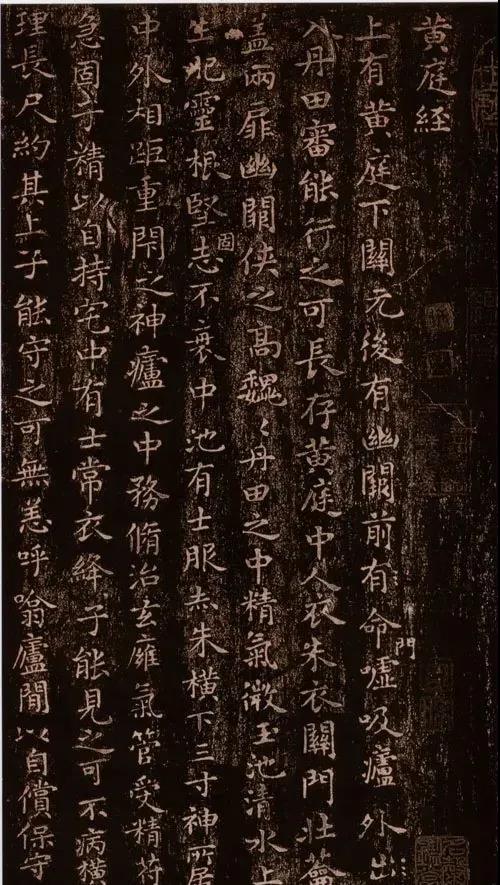 黄庭經
上有黄庭下關元後有幽闕前有命門嘘吸廬外出
入丹田審能行之可長存黄庭中人衣朱衣關門壯籥
盖兩扉幽關俠之高魏〻丹田之中精氣微玉池清水上
生肥靈根堅固志不衰中池有士服赤朱横下三寸神所居
中外相距重閇之神廬之中務脩治玄癕氣管受精符
急固子精以自持宅中有士常衣絳子能見之可不病横
理長尺約其上子能守之可無恙呼噏廬間以自償保守